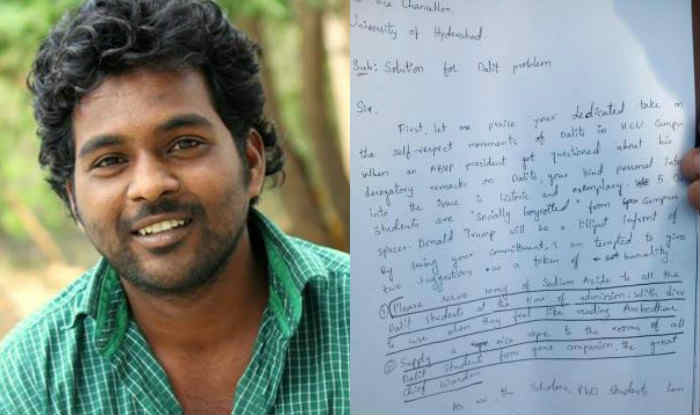 Vice Chancellor
University of Hyderabad
Sub: Solution for Dalit problem
Sir,
First, let me praise your dedicated take on
the self-respect movements of Dalits in HCU Campus
when an ABVP president got questioned about his
derogatory remarks on Dalits, your kind personal
into the issue is historic and exemplary. 5
students are "socially boycotted" from campus
spaces. Donald Trump will be a lilliput infront of
by seeing your commitment, I am tempted to give
two suggestions as a token of
① Please serve 10mg of Sodium Azide to all the
Dalit students at the time of admission. With
to use when they feel like reading Ambedkar.
② Supply a nice rope to the rooms of all
Dalit students from your companion, the great
chief warden
As we the Scholars, PhD students have